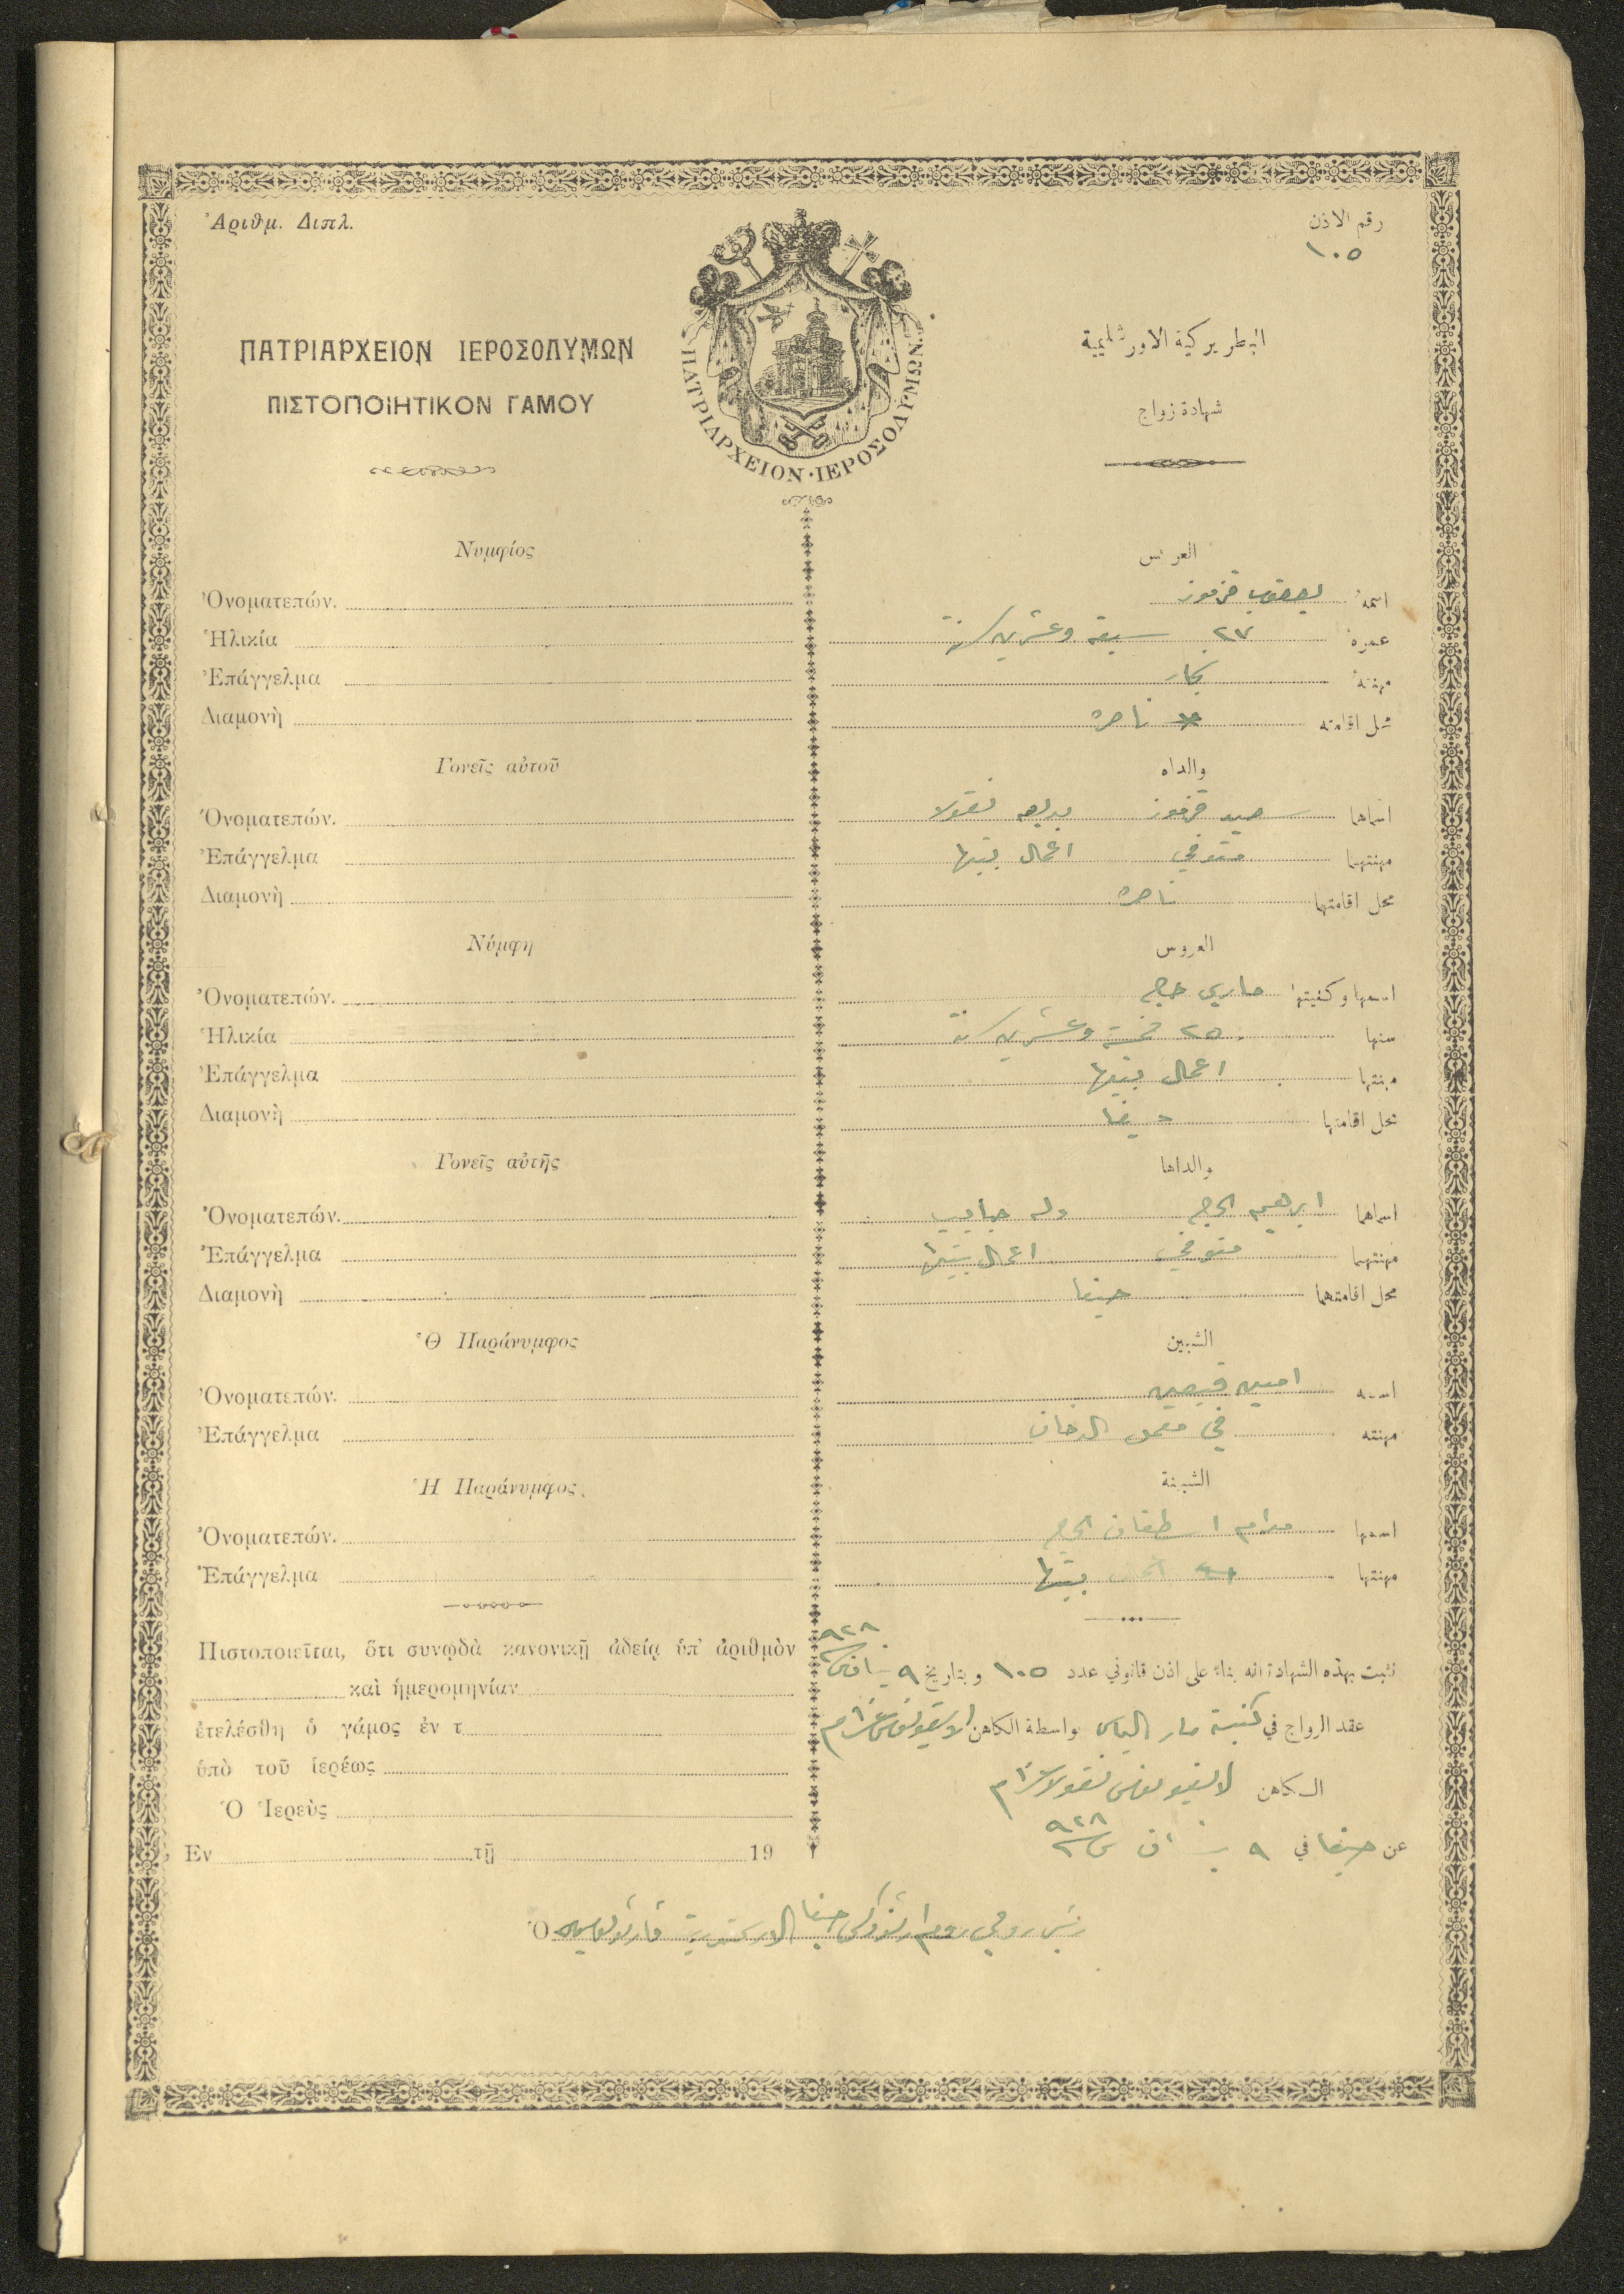 Ἀριθμ. Διπλ.
رقم الاذن
١٠٥
ΠΑΤΡΙΑΡΧΕΙΟΝ ΙΕΡΟΣΟΛΥΜΩΝ
ΠΙΣΤΟΠΟΙΗΤΙΚΟΝ ΓΑΜΟΥ
ΠΑΤΡΙΑΡΧΕΙΟΝ·ΙΕΡΟΣΟΛΥΜΩΝ
البطريركية الاورشليمية
شهادة زواج
Νυμφίος
Ὀνοματεπών.
Ἡλικία
Ἐπάγγελμα
Διαμονὴ
Γονεῖς αὐτοῦ
Ὀνοματεπών.
Ἐπάγγελμα
Διαμονὴ
Νύμφη
Ὀνοματεπών.
Ἡλικία
Ἐπάγγελμα
Διαμονὴ
Γονεῖς αὐτῆς
Ὀνοματεπών.
Ἐπάγγελμα
Διαμονὴ
Ὁ Παράνυμφος
Ὀνοματεπών.
Ἐπάγγελμα
Ἡ Παράνυμφος
Ὀνοματεπών.
Ἐπάγγελμα
Πιστοποιεῖται, ὅτι συνῳδὰ κανονικῇ ἀδείᾳ ὑπ' ἀριθμὸν
καὶ ἡμερομηνίαν
ἐτελέσθη ὁ γάμος ἐν τ
ὑπὸ τοῦ ἱερέως
Ὁ Ἱερεὺς
Ἐν τῇ 19
العريس
اسمهُ يعقوب قزموز
عمرهُ ٢٧ سبعة وعشرين سنة
مهنتهُ نجار
محل اقامته ناصره
والداه
اسماهما سعيد قزموز بديعه نقولا
مهنتهما متوفي اعمال بيتها
محل اقامتهما ناصره
العروس
اسمها وكنيتها ماري حاج
سنها ٢٥ خمسة وعشرين سنة
مهنتها اعمال بيتها
محل اقامتها حيفا
والداها
اسماهما ابرهيم الحاج
مهنتهما متوفي اعمال بيتها
محل اقامتهما حيفا
الشبين
اسمه امين
مهنته في معمل الدخان
الشبينة
اسمها مدام اسطفان الحاج
مهنتها بيتها
نثبت بهذه الشهادة انه بناءً على اذن قانوني عدد ١٠٥ وبتاريخ ٩ نيسان سنة ٩٢٨
عقد الزواج في كنيسة مار الياس بواسطة الكاهن
الكاهن نقولا
عن حيفا في ٩ نيسان سنة ٩٢٨
Ὁ رئيس روحي روم ارثوذكس حيفا